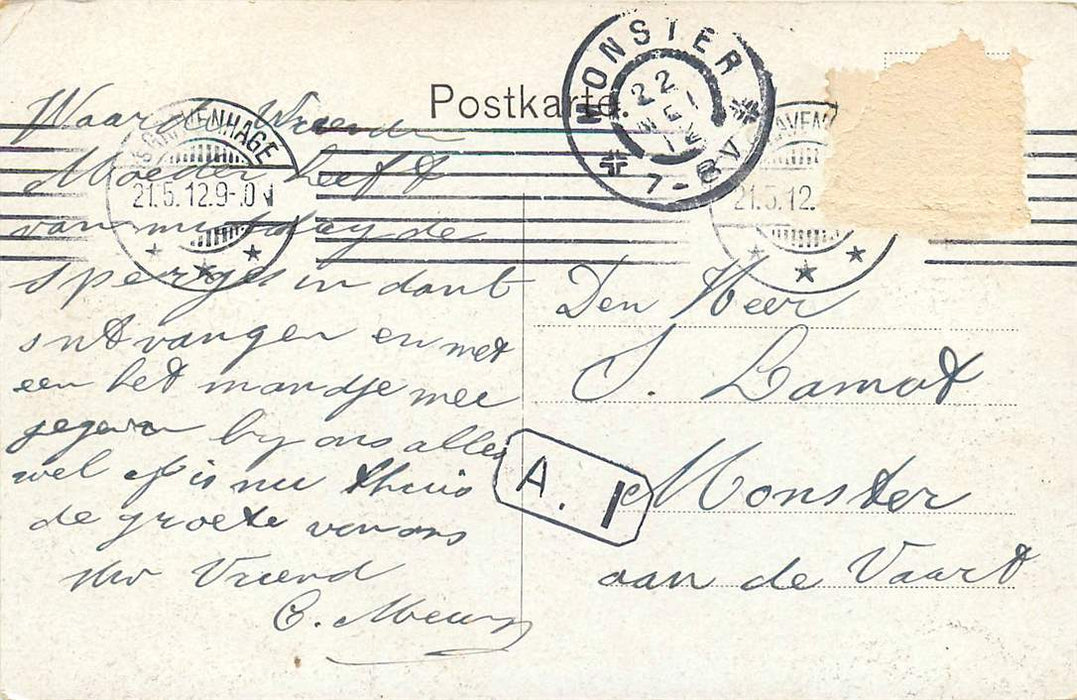 Postkarte
MONSTER
22 MEI 12
7-8V
'S GRAVENHAGE
21.5.12.9-
GRAVEN
21.5.12.
Waarde Vrienden
Moeder heeft
van middag de
sperges in dank
ontvangen en met
een het mandje mee
gegeven by ons alles
wel is nu thuis
de groete van ons
Uw Vriend
C.
Den Heer
S. Lamot
Monster
aan de Vaart
A. 1